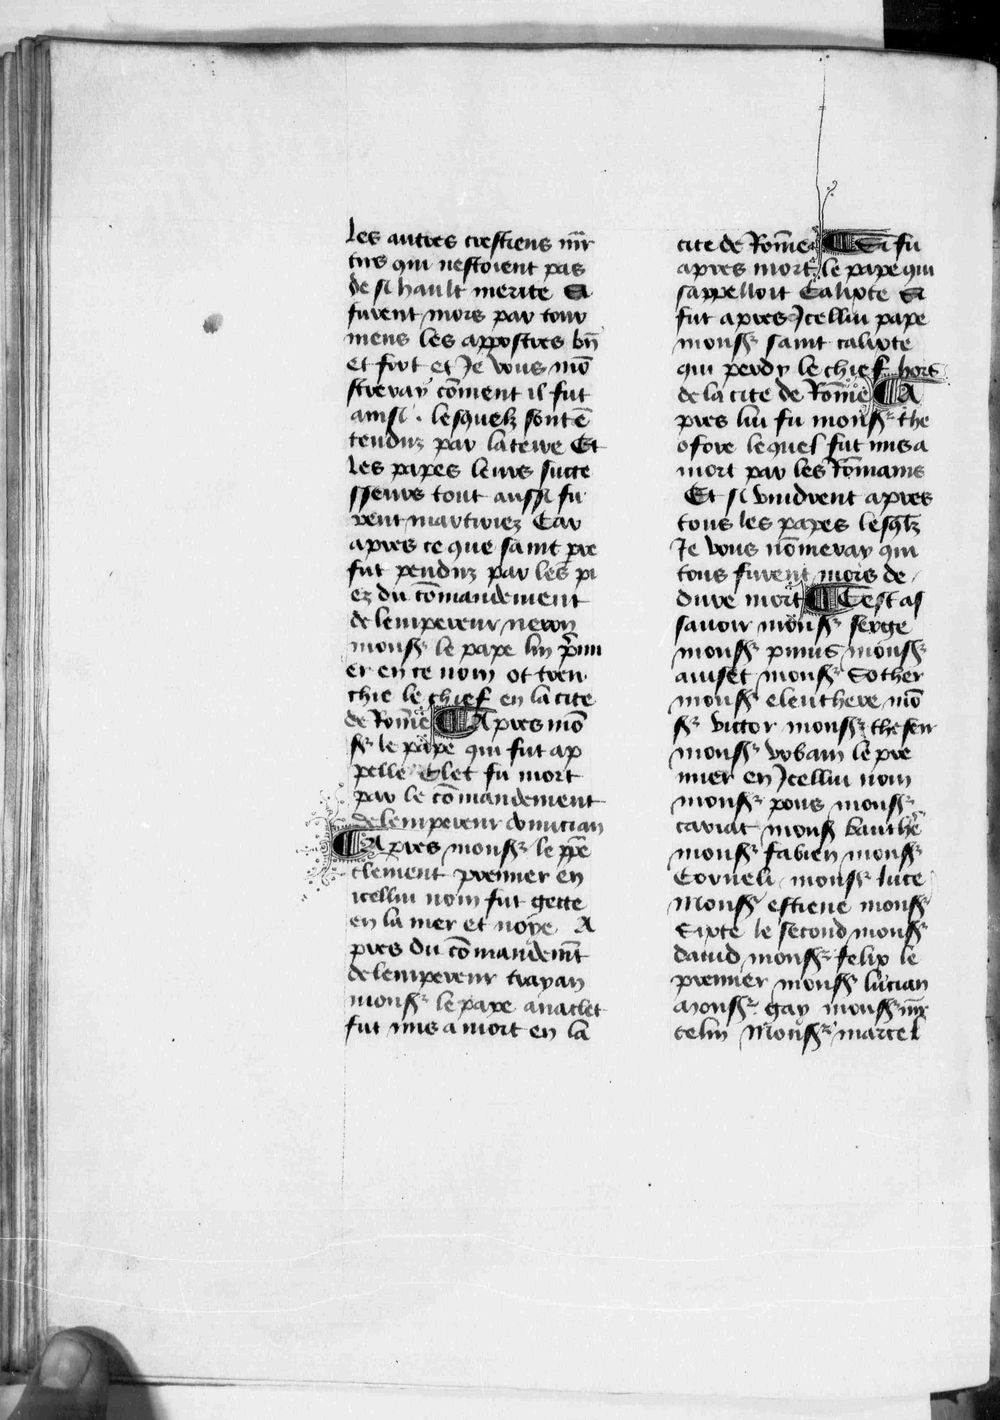 les autres crestiens mr̄
tirs qui nestoient pas
de si hault merite Si
furent mors par tour
mens les appostres bn̄
et fort et Je vous mō
streray cōment il fut
ainsi . lesquelz sont ē
tenduz par la terre Et
les papes leurs succe
sseurs tout aussi fu
rent martiriez Car
apres ce que saint pre
fut penduz par les pi
ez du cōmandement
de lempereur neron
monsr le pape lin p̄mi
er en ce nom ot tren
chie le chief en la cite
de Rom̄e ¶ Apres mō
sr le pape qui fut ap
pelle Clet fu mort
par le cōmandement
de lempereur domician
¶ Apres monsr le ppe
clement premier en
icellui nom fut gette
en la mer et noye A
pres du cōmandemt̄
de lempereur trayan
monsr le pape anaclet
fut mis a mort en la
cite de Rom̄e ¶ Si fu
apres mort le pape qui
sappelloit Calixte Si
fut apres Jcellui pape
monsr saint calixte
qui perdy le chief hors
de la cite de Rom̄e ¶ A
pres lui fu monsr the
ofore lequel fut mis a
mort par les Rōmains
Et si vindrent apres
tous les papes lesqlz
Je vous nōmeray qui
tous furent mors de
dure mort ¶ Cest as
sauoir monsr serge
monsr pimis monsr
auiset monsr Sother
monsr eleuthere mō
sr victor monsr thesen
monsr vrbain le pre
mier en Jcellui nom
monsr pons monsr
cariat monsr bauthe
monsr fabien monsr
Corneli monsr luce
Monsr estiene monsr
Sixte le second monsr
dauid monsr felix le
premier monsr lucian
Monsr gay monsr mr
celin Monsr marcel